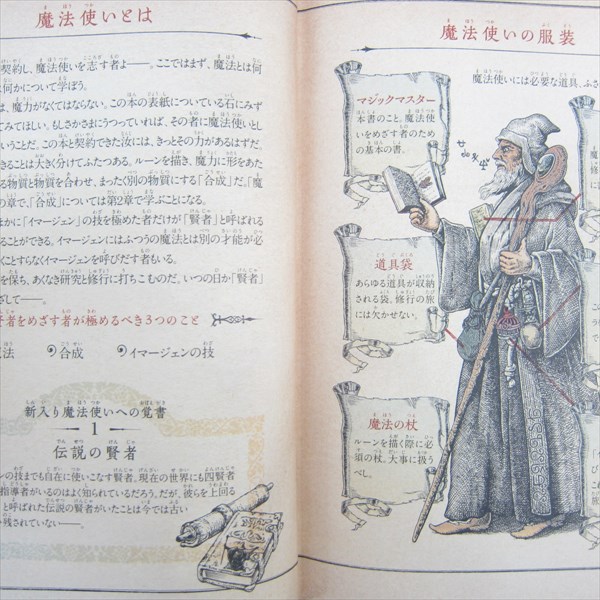 魔法使いとは
契約し、魔法使いを志す者よ――。ここではまず、魔法とは何
は何かについて学ぼう。
は、魔力がなくてはならない。この本の表紙についている石にみず
てみてほしい。もしさかさまにうつっていれば、その者に魔法使いとし
いうことだ。この本と契約できた汝には、きっとその力があるはずだ。
きることは大きく分けてふたつある。ルーンを描き、魔力に形をあた
る物質と物質を合わせ、まったく別の物質にする「合成」だ。「魔
の章で、「合成」については第2章で学ぶことになる。
ほかに「イマージェン」の技を極めた者だけが「賢者」と呼ばれる
ることができる。イマージェンにはふつうの魔法とは別の才能が必
くことすらなくイマージェンを呼びだす者もいる。
を保ち、あくなき研究と修行に打ちこむのだ。いつの日か「賢者」
ざして――。
賢者をめざす者が極めるべき3つのこと
法 合成 イマージェンの技
新入り魔法使いへの覚書
1
伝説の賢者
ンの技までも自在に使いこなす賢者。現在の世界にも四賢者
指導者がいるのはよく知られているだろう。だが、彼らを上回る
と呼ばれた伝説の賢者がいたことは今では古い
か残されていない――。
魔法使いの服装
魔法使いには必要な道具、ふさ
マジックマスター
本書のこと。魔法使
いをめざす者のため
の基本の書。
道具袋
あらゆる道具が収納
される袋。修行の旅
には欠かせない。
魔法の杖
ルーンを描く際に必
須の杖。大事に扱う
べし。